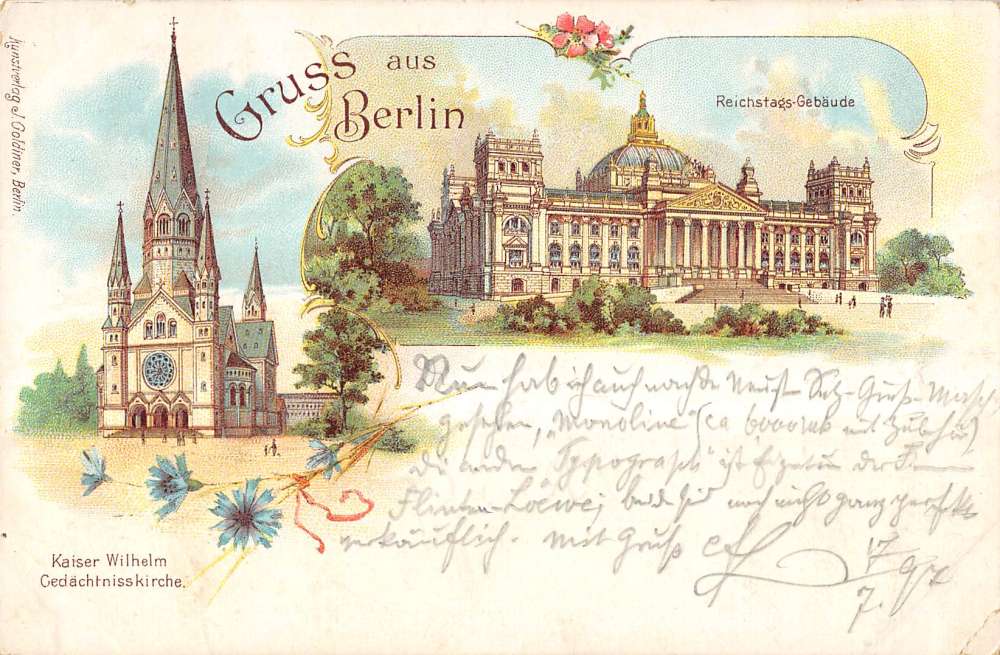 Kunstverlag J. Goldiner, Berlin.
Gruss aus
Berlin
Reichstags-Gebäude
Nun hab ich auch noch die Neuste Setz-Gieß-Masch
gesehen, „Monoline" (ca 6000 mk mit Zubehör)
die andere „Typograph" ist Eigentum der
Flinten-Loewe; beide sind noch nicht ganz perfekt
verkäuflich. Mit Gruß
17/7. 97
Kaiser Wilhelm
Gedächtnisskirche.